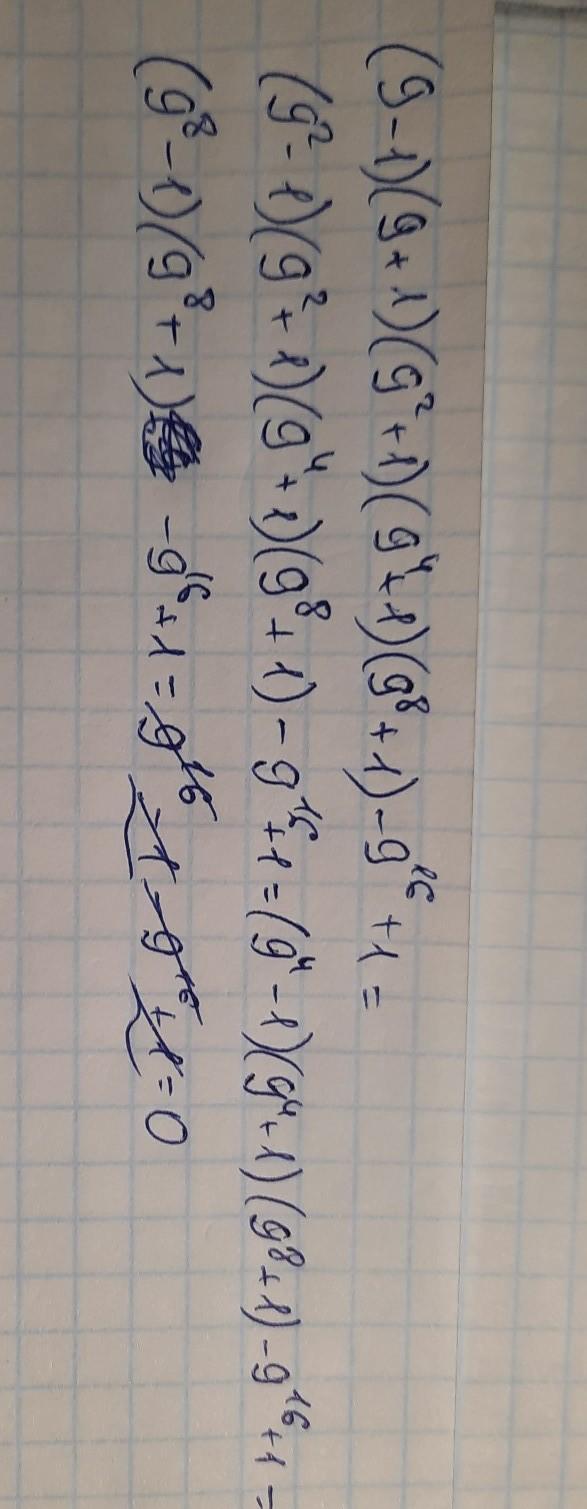 (g-1)(g+1)(g²+1)(g⁴+1)(g⁸+1)-g¹⁶+1=
(g²-1)(g²+1)(g⁴+1)(g⁸+1)-g¹⁶+1=(g⁴-1)(g⁴+1)(g⁸+1)-g¹⁶+1=
(g⁸-1)(g⁸+1)-g¹⁶+1=g¹⁶-1-g¹⁶+1=0